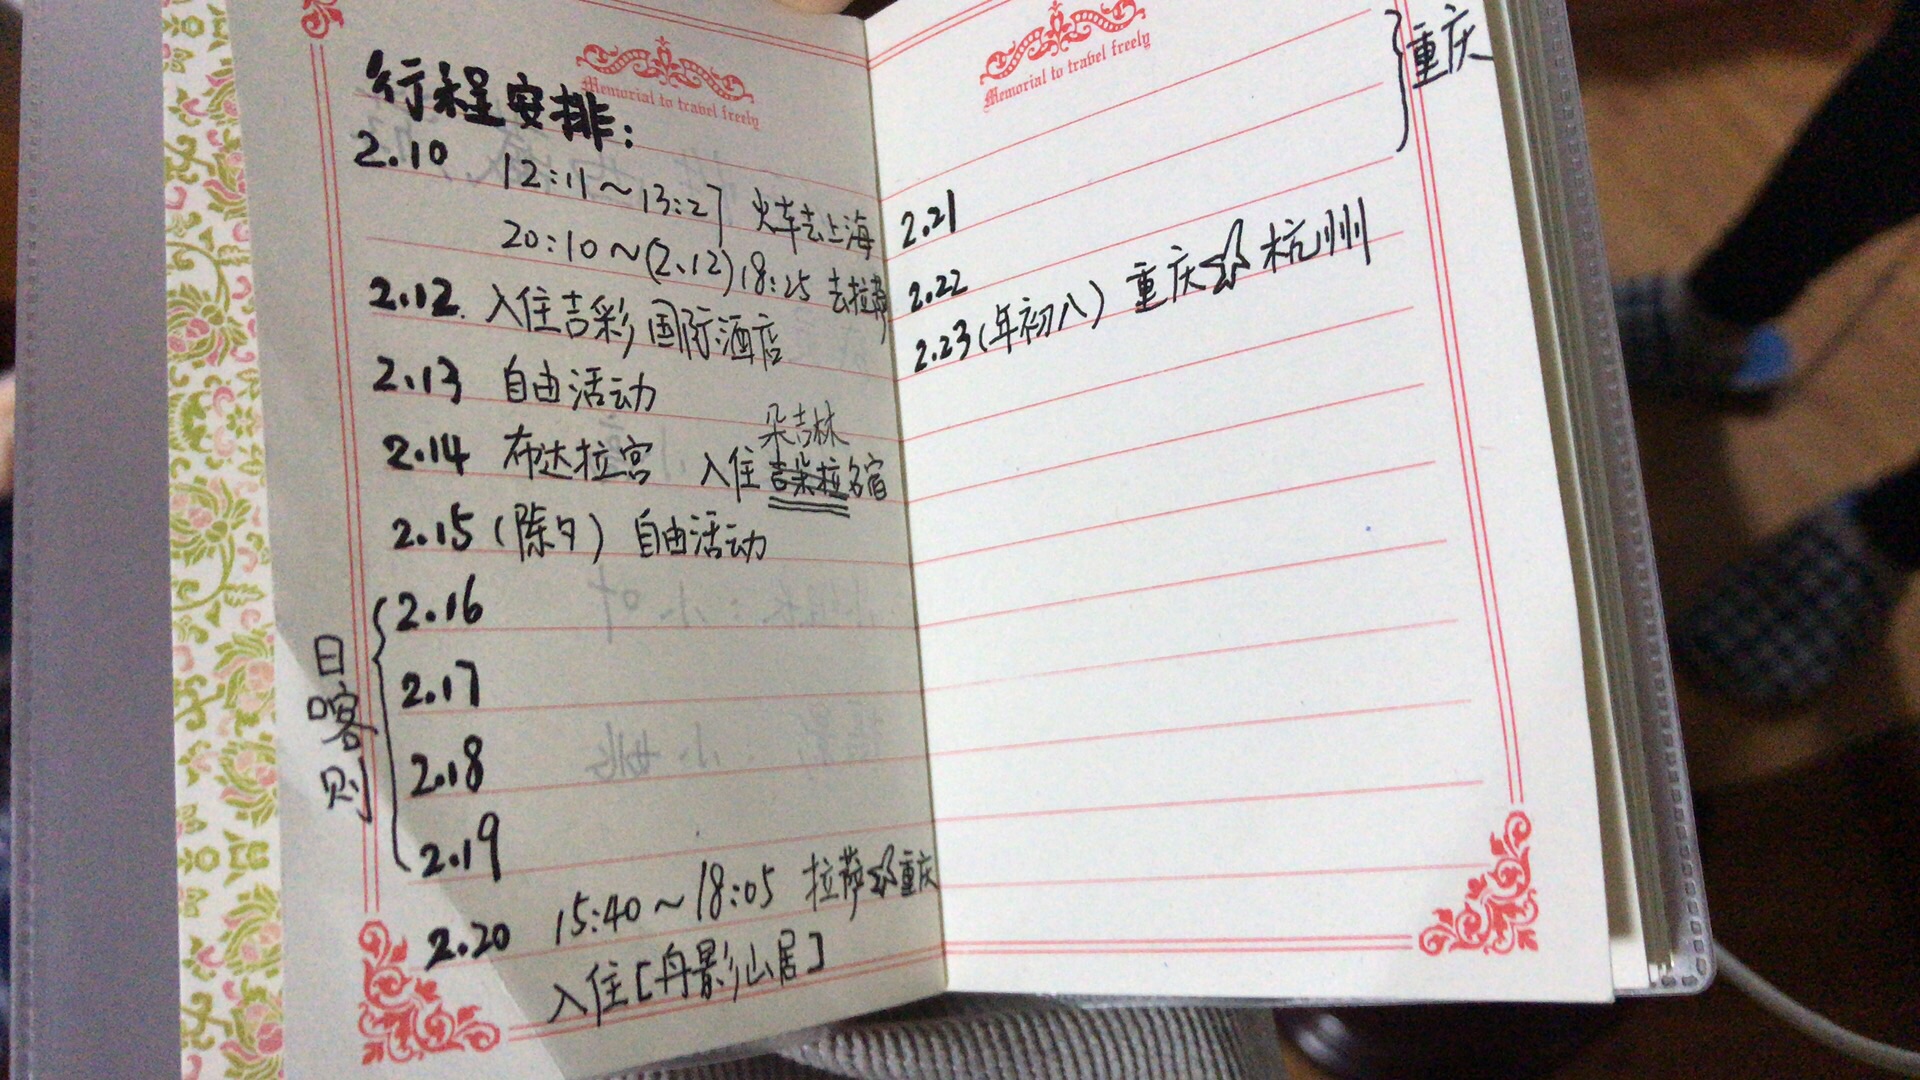 Memorial to travel freely
行程安排:
2.10 12:11~13:27 火车去上海
20:10~(2.12)18:25 去拉萨
2.12. 入住吉彩国际酒店
2.13 自由活动
朵吉林
2.14 布达拉宫 入住吉朵拉名宿
2.15 (除夕) 自由活动
日喀则
2.16
2.17
2.18
2.19
2.20 15:40~18:05 拉萨 重庆
入住[舟影山居]
Memorial to travel freely
重庆
2.21
2.22
2.23(年初八) 重庆 杭州